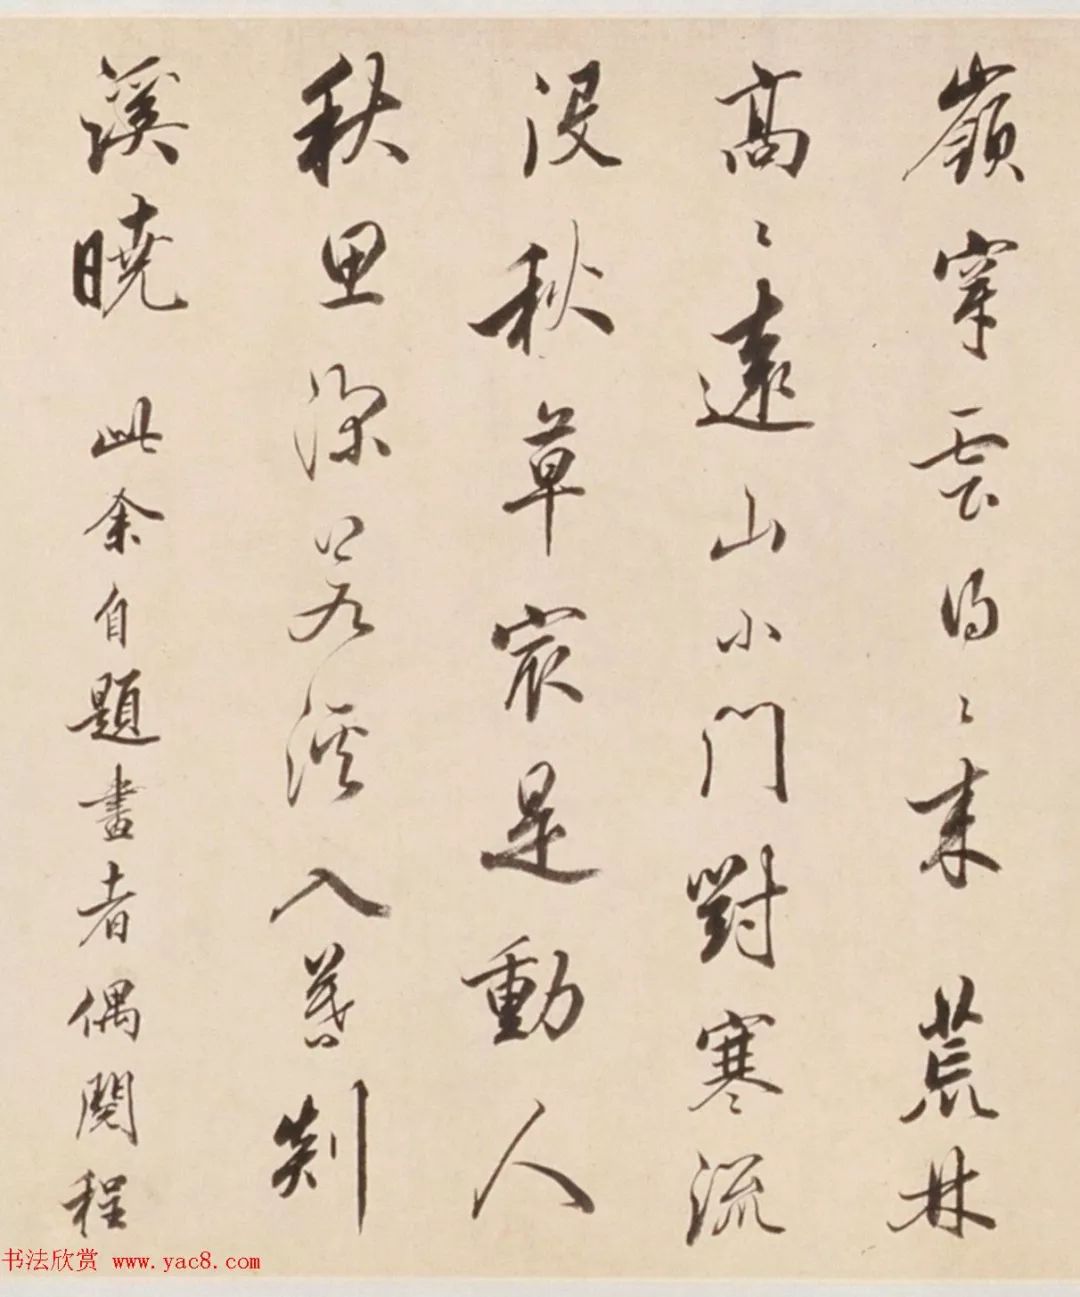 嶺穿雲得〻來荒林
高〻遠山小門對寒流
沒秋草最是動人
秋思深若溪入暮剡
溪曉 此余自題畫者偶閱程
书法欣赏 www.yac8.com